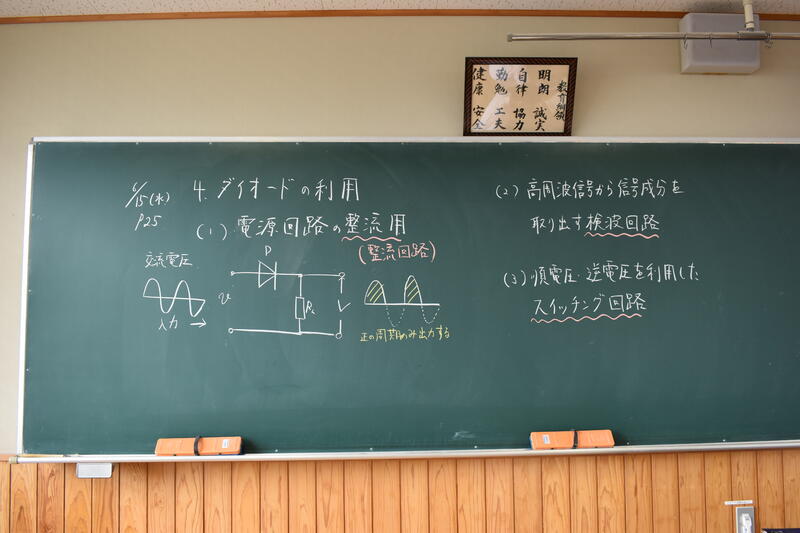 教育綱領
明朗 誠実
自律 協力
勤勉 工夫
健康 安全
6/15(水)
P25
4. ダイオードの利用
(1) 電源回路の整流用
(整流回路)
交流電圧
入力 →
v
D
R
V
正の周期のみ出力する
(2) 高周波信号から信号成分を
取り出す検波回路
(3) 順電圧・逆電圧を利用した
スイッチング回路